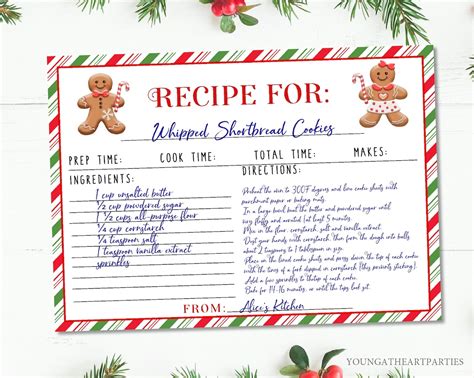 RECIPE FOR:
Whipped Shortbread Cookies
PREP TIME: COOK TIME: TOTAL TIME: MAKES:
INGREDIENTS:
1 cup unsalted butter
1/2 cup powdered sugar
1 1/2 cups all-purpose flour
1/4 cup cornstarch
1/4 teaspoon salt
1 teaspoon vanilla extract
sprinkles
DIRECTIONS:
Preheat the oven to 300°F degrees and line cookie sheets with
parchment paper or baking mats.
In a large bowl beat the butter and powdered sugar until
fluffy and aerated (at least 5 minutes).
Mix in the flour, cornstarch, salt and vanilla extract.
Dust your hands with cornstarch, then form the dough into balls
about 2 teaspoons to 1 tablespoon in size.
Place in the lined cookie sheets and press down the top of each cookie
with the tines of a fork dipped in cornstarch (this prevents sticking).
Add a few sprinkles to the tops of each cookie.
Bake for 14-16 minutes, or until the tops look set.
FROM: Alice's Kitchen
YOUNGATHEARTPARTIES